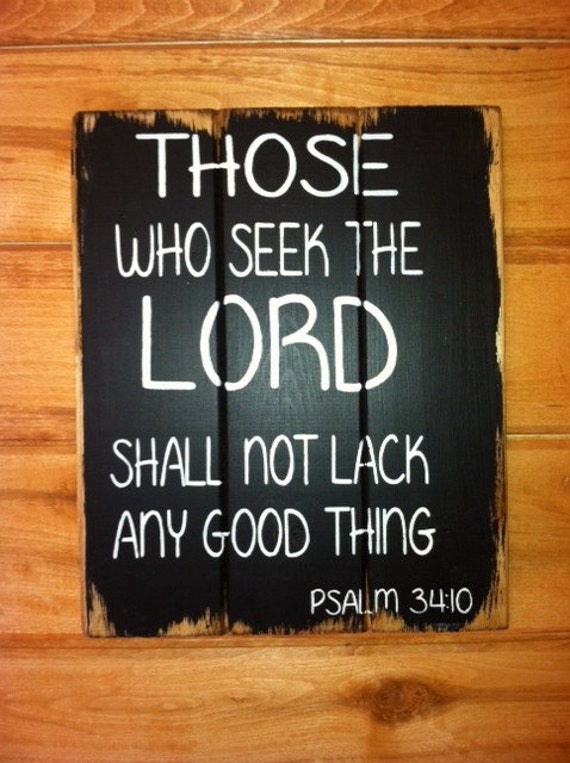 THOSE
WHO SEEK THE
LORD
SHALL NOT LACK
ANY GOOD THING
PSALM 34:10